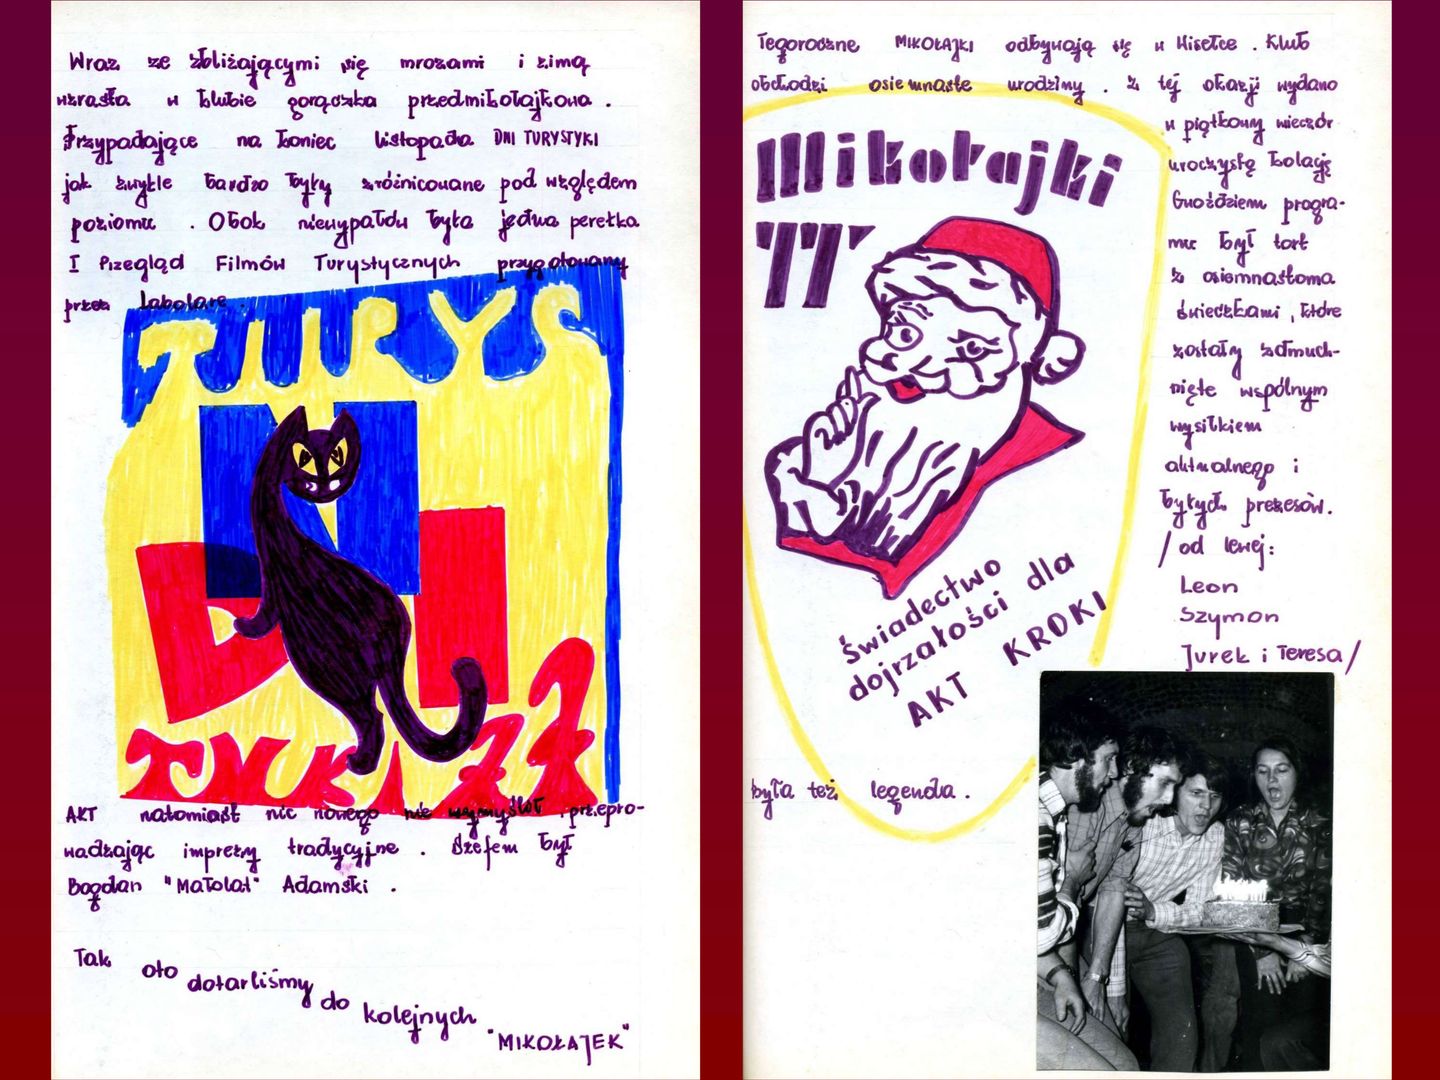 Wraz ze zbliżającymi się mrozami i zimą
wzrasta w klubie gorączka przedmikołajkowa.
Przypadające na koniec listopada DNI TURYSTYKI
jak zwykle bardzo były zróżnicowane pod względem
poziomu. Obok niewypałów była jedna perełka
I Przegląd Filmów Turystycznych przygotowany
przez
TURYS
DNI
TYKI 77
AKT natomiast nic nowego nie wymyślał, przepro-
wadzając imprezy tradycyjne. Szefem był
Bogdan "Matolat" Adamski.
Tak oto dotarliśmy do kolejnych
"MIKOŁAJEK"
Tegoroczne MIKOŁAJKI odbywają się w Misełce. Klub
obchodzi osiemnaste urodziny. Z tej okazji wydano
w piątkowy wieczór
uroczystą kolację
Gwoździem progra-
mu był tort
z osiemnastoma
świeczkami, które
zostały zdmuch-
nięte wspólnym
wysiłkiem
aktualnego i
byłych prezesów.
/od lewej:
Leon
Szymon
Jurek i Teresa/
Mikołajki
77
Świadectwo
dojrzałości dla
AKT KROKI
była też legenda.